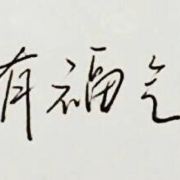 有福气